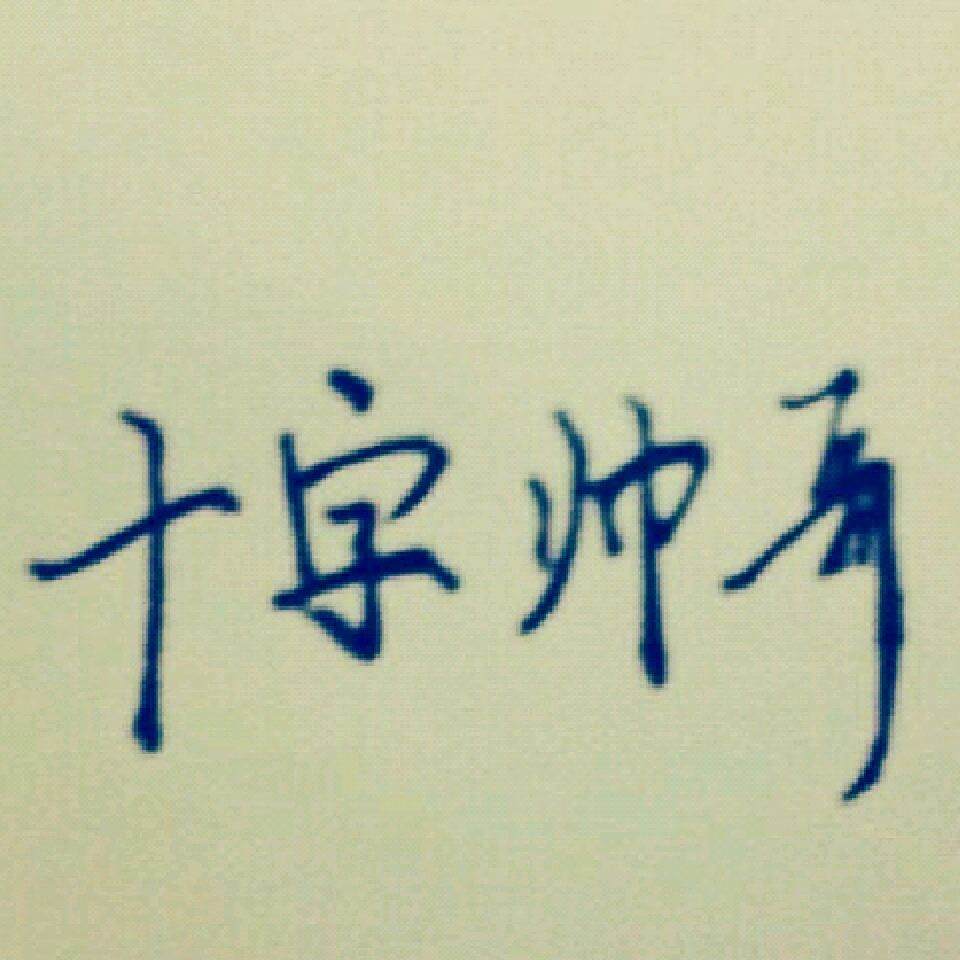 十字帅哥